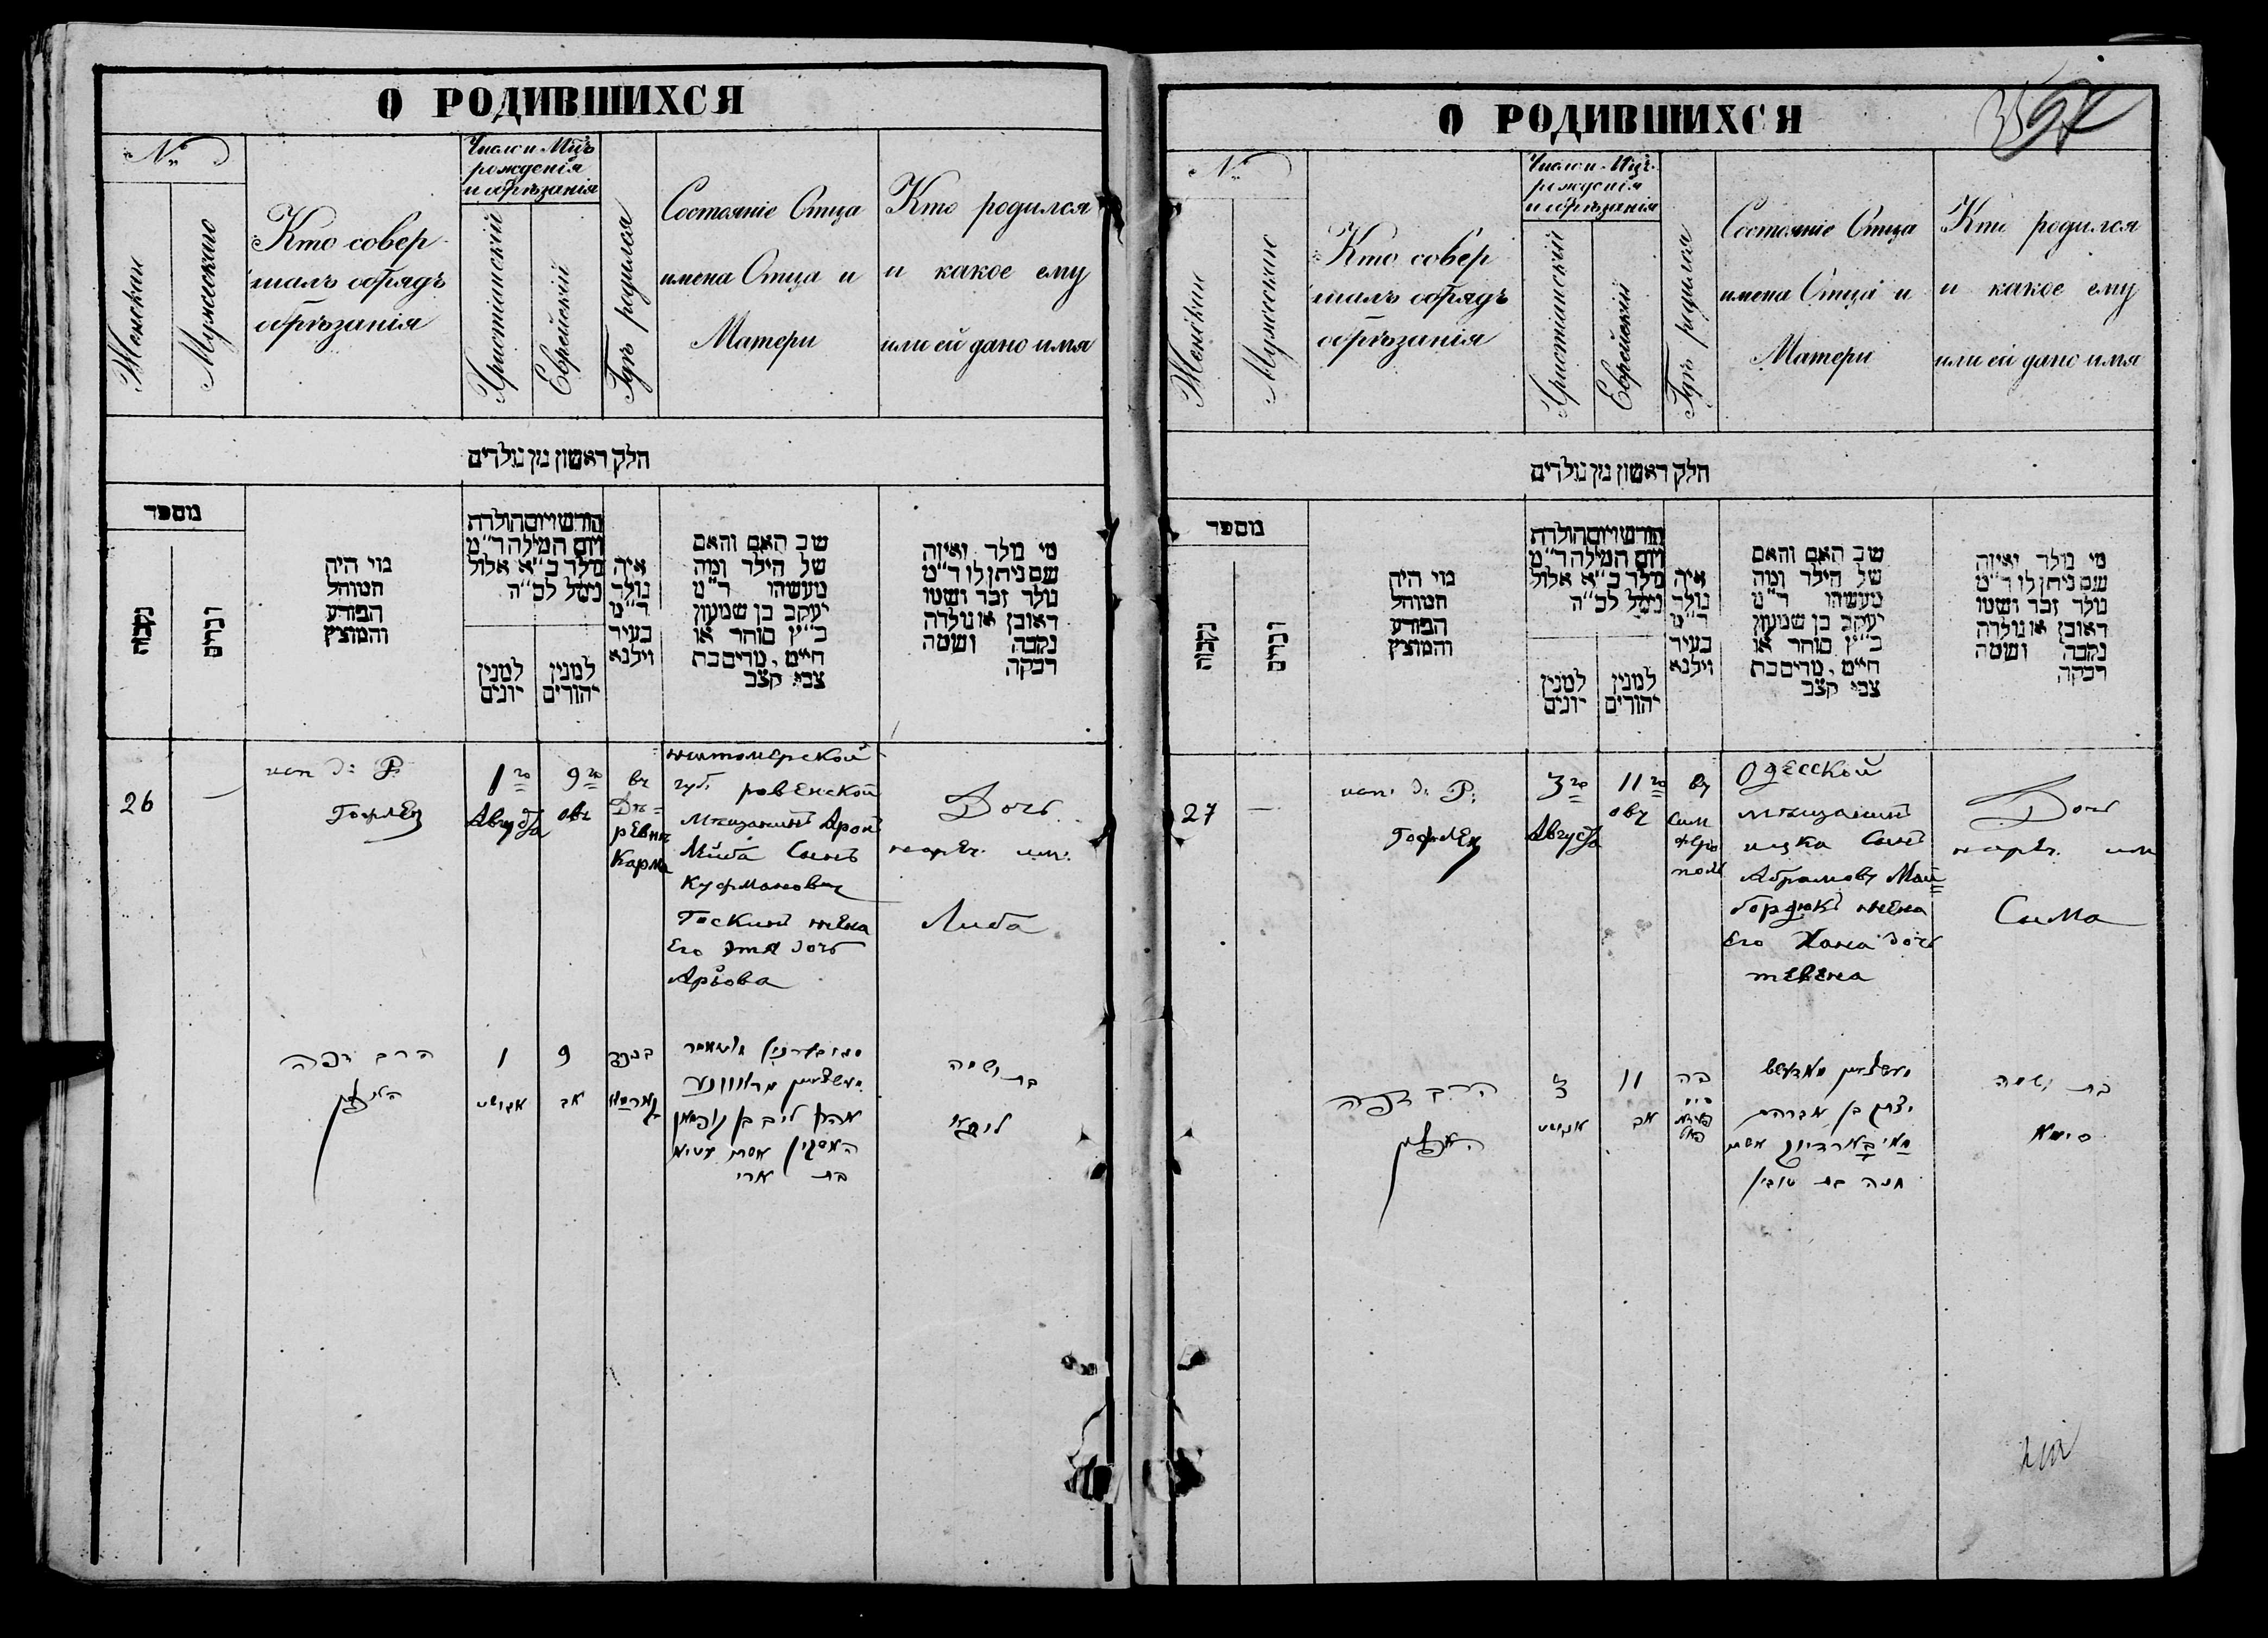 О РОДИВШИХСЯ
№
Женскаго
Мужескаго
Кто совер
шалъ обрядъ
обрѣзанія
Число и Мцъ
рожденія
и обрѣзанія
Христіанскій
Еврейскій
Гдѣ родился
Состояніе Отца
имена Отца и
Матери
Кто родился
и какое ему
или ей дано имя
חלק ראשון מן נולדים
מספר
נקבות
זכרים
מי היה
המוהל
הפורע
והמוצץ
חודש ויום הולדת
ויום המילה ד״מ
נולד כ״א אלול
נימל לכ״ה
למנין
יונים
למנין
יהודים
איה
נולד
ד״מ
בעיר
ווילנא
שם האב והאם
של הילד ומה
מעשהו ד״מ
יעקב בן שמעון
כ״ץ סוחר או
חיים, מרים בת
צבי קצב
מי נולד ואיזה
שם ניתן לו ד״מ
נולד זכר ושמו
ראובן או נולדה
נקבה ושמה
רבקה
26
исп д: Р.
Гофлен
1го
Августа
9го
овъ
въ
Де=
ревне
Карма
житомерской
губ. ровенской
мещанинъ Арон
Лейба Сынъ
Куфманович
Госкинъ жена
Его Этя дочь
Арьова
Дочь
нареч. им.
Либа
הרב דפה
1
אווגוסט
9
אב
אהרן ליב בן קופמאן
בת ארי
בת ושמה
ליבא
О РОДИВШИХСЯ
№
Женскаго
Мужескаго
Кто совер
шалъ обрядъ
обрѣзанія
Число и Мцъ
рожденія
и обрѣзанія
Христіанскій
Еврейскій
Гдѣ родился
Состояніе Отца
имена Отца и
Матери
Кто родился
и какое ему
или ей дано имя
חלק ראשון מן נולדים
מספר
נקבות
זכרים
מי היה
המוהל
הפורע
והמוצץ
חודש ויום הולדת
ויום המילה ד״מ
נולד כ״א אלול
נימל לכ״ה
למנין
יונים
למנין
יהודים
איה
נולד
ד״מ
בעיר
ווילנא
שם האב והאם
של הילד ומה
מעשהו ד״מ
יעקב בן שמעון
כ״ץ סוחר או
חיים, מרים בת
צבי קצב
מי נולד ואיזה
שם ניתן לו ד״מ
נולד זכר ושמו
ראובן או נולדה
נקבה ושמה
רבקה
27
исп. д: Р:
Гофлен
3го
Августа
11го
овъ
въ
Сим
феро
поле
Одесской
мещанинъ
ицка Сынъ
Абрамовъ Май=
бордюкъ жена
Его Хана дочь
тевена
Дочь
нареч. им
Сима
הרב דפה
3
אווגוסט
11
אב
יצחק בן אברהם
מאי בארדיוק אשתו
חנה בת טובין
בת ושמה
סימא